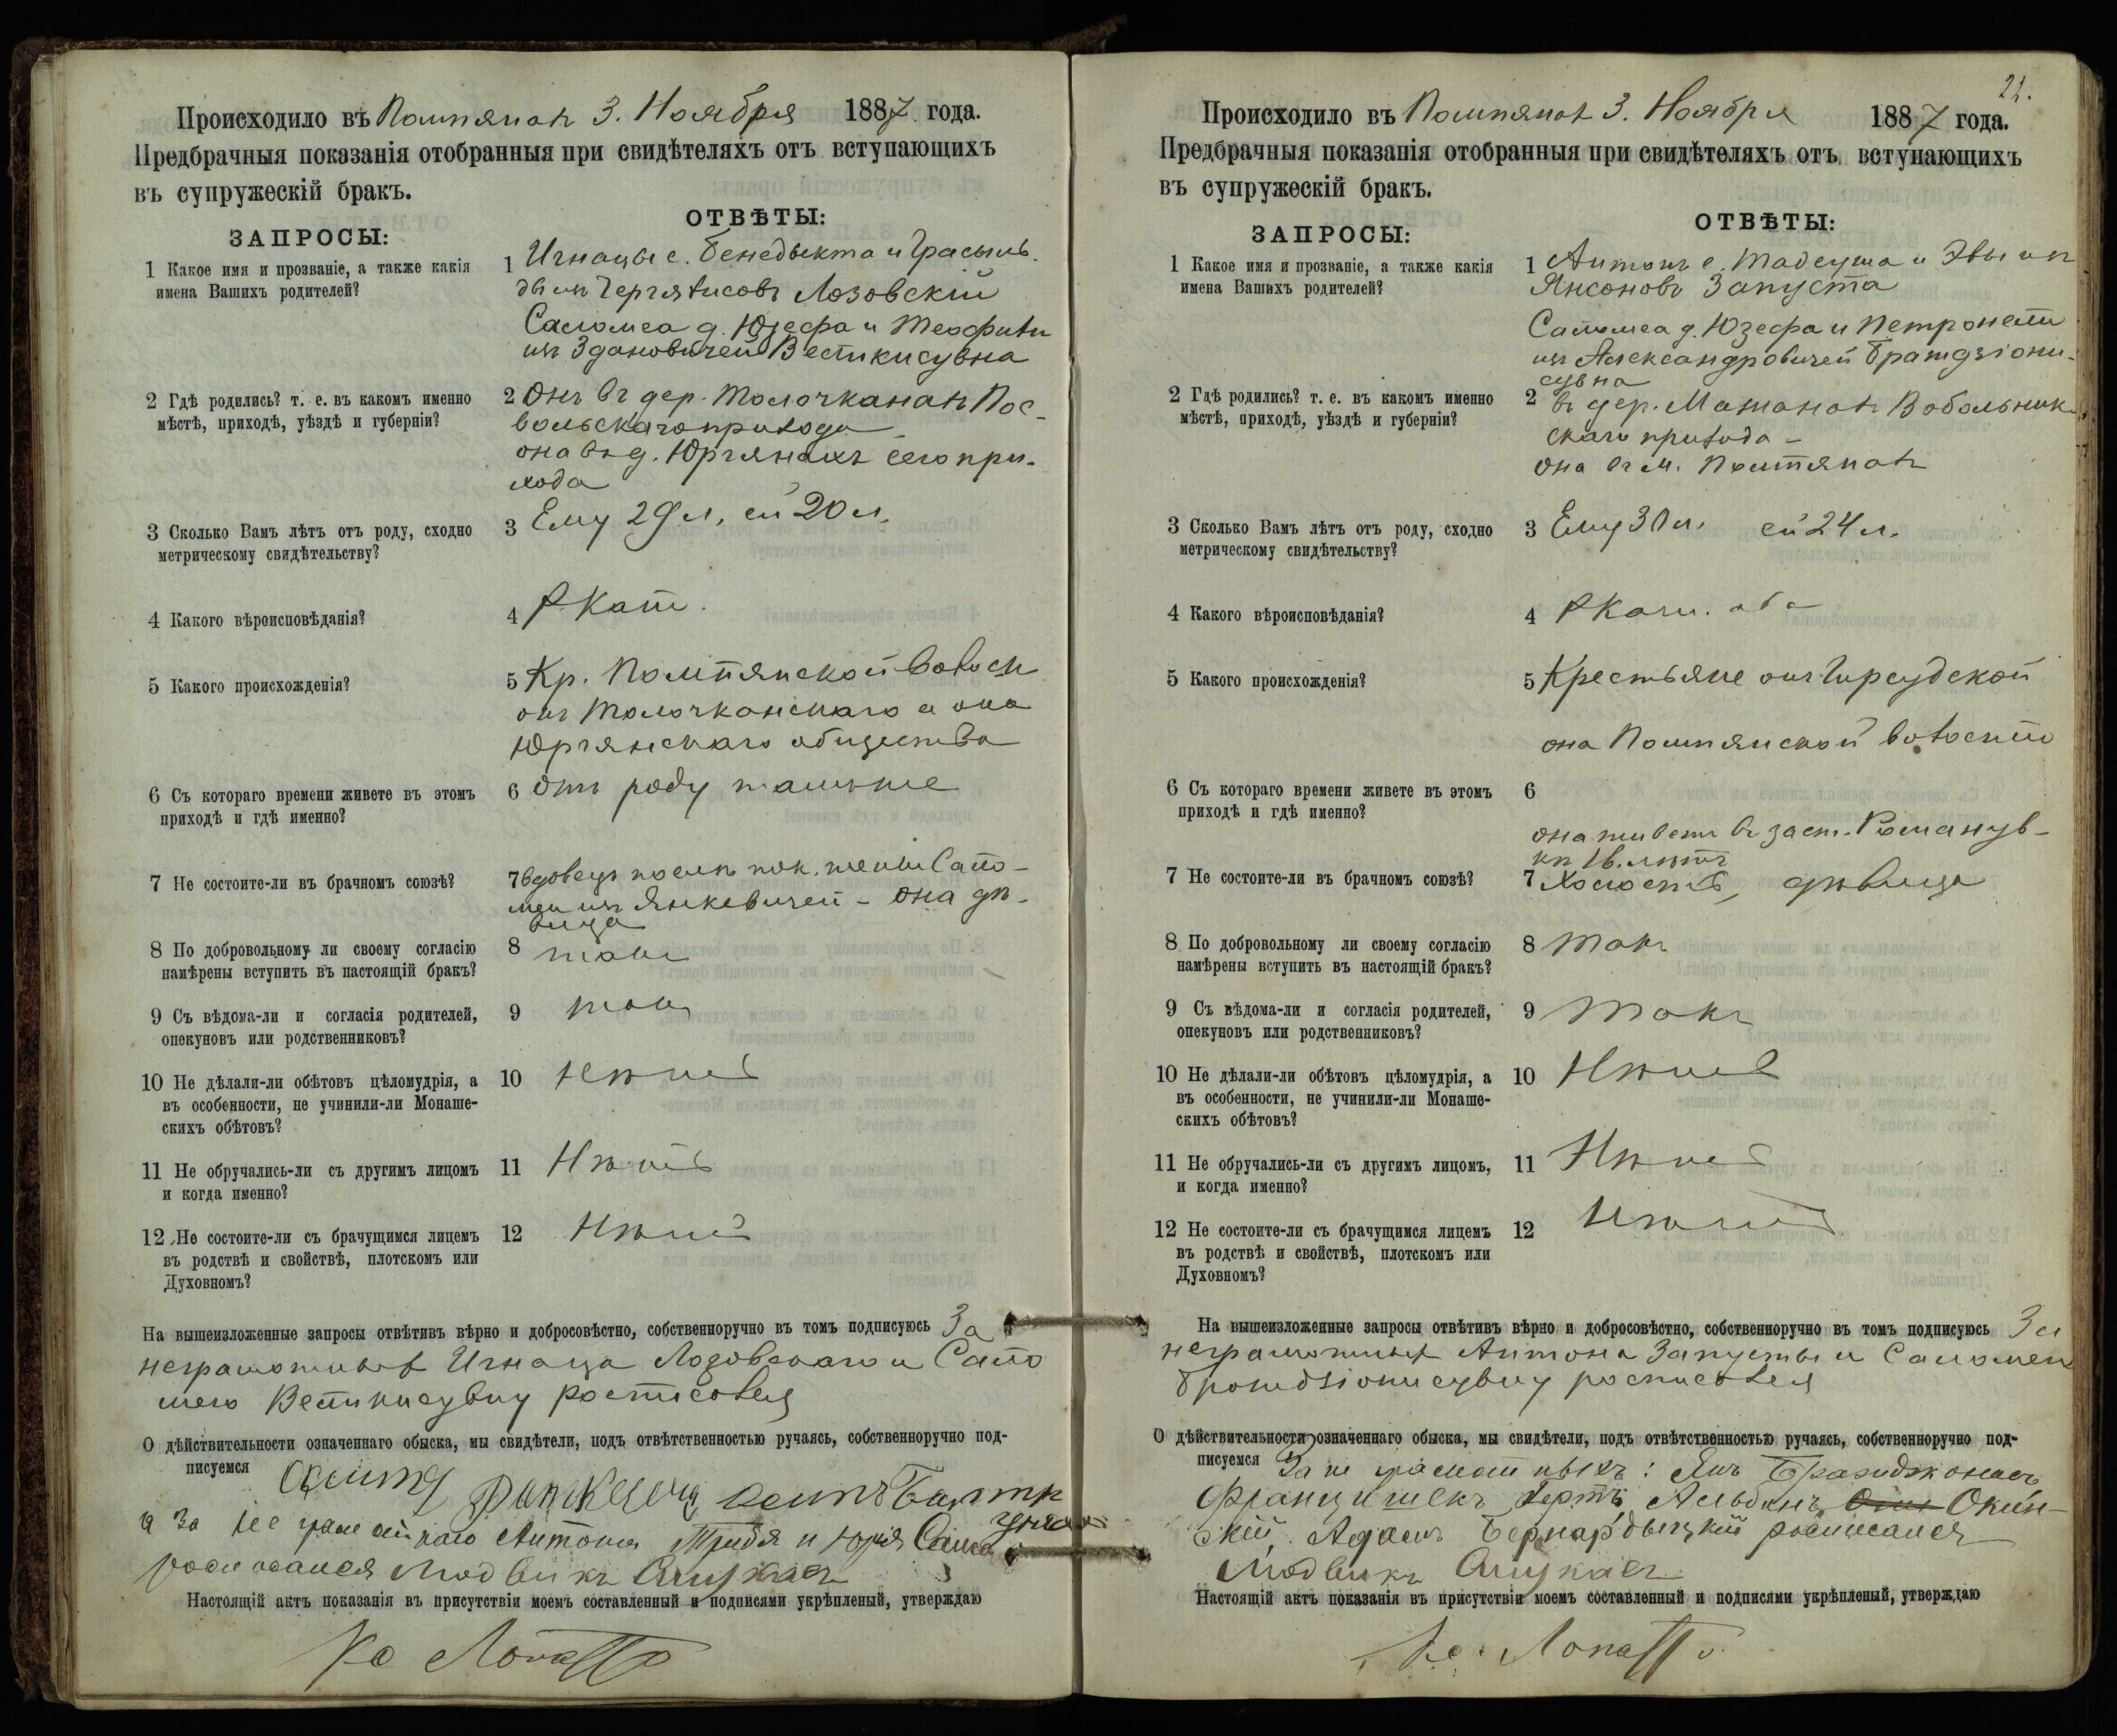 Происходило въ Помпянахъ 3. Ноября 1887 года.
Предбрачныя показанія отобранныя при свидѣтеляхъ отъ вступающихъ
въ супружескій бракъ.
ЗАПРОСЫ:
ОТВѢТЫ:
1 Какое имя и прозваніе, а также какія
имена Вашихъ родителей?
1 Игнацы с. Бенедыкта и
Лозовскій
Саломеа д. Юзефа и Теофили
изъ Здановичей
2 Гдѣ родились? т. е. въ какомъ именно
мѣстѣ, приходѣ, уѣздѣ и губерніи?
2 Онъ въ дер. Толочканахъ Пос-
вольскаго прихода
она въ д. Юргянахъ сего при-
хода
3 Сколько Вамъ лѣтъ отъ роду, сходно
метрическому свидѣтельству?
3 Ему 29 л, ей 20 л.
4 Какого вѣроисповѣданія?
4 Р Кат.
5 Какого происхожденія?
5 Кр. Помпянской волости
онъ Толочканскаго а она
Юргянскаго общества
6 Съ котораго времени живете въ этомъ
приходѣ и гдѣ именно?
6 Отъ роду тамъже
7 Не состоите-ли въ брачномъ союзѣ?
7 вдовецъ послѣ пок. жены Сало-
меи изъ Янкевичей - она дѣ-
вица
8 По добровольному ли своему согласію
намѣрены вступить въ настоящій бракъ?
8 такъ
9 Съ вѣдома-ли и согласія родителей,
опекуновъ или родственниковъ?
9 такъ
10 Не дѣлали-ли обѣтовъ цѣломудрія, а
въ особенности, не учинили-ли Монаше-
скихъ обѣтовъ?
10 Нѣтъ
11 Не обручались-ли съ другимъ лицомъ
и когда именно?
11 Нѣтъ
12 Не состоите-ли съ брачущимся лицемъ
въ родствѣ и свойствѣ, плотскомъ или
Духовномъ?
12 Нѣтъ
На вышеизложенные запросы отвѣтивъ вѣрно и добросовѣстно, собственноручно въ томъ подписуюсь За
неграмотныхъ Игнаца Лозовскаго и Сало
мею росписался
О дѣйствительности означеннаго обыска, мы свидѣтели, подъ отвѣтственностью ручаясь, собственноручно под-
писуемся
а За не грамотнаго Антона и Юрія
росписался Людвикъ
Настоящій актъ показанія въ присутствіи моемъ составленный и подписями укрѣпленый, утверждаю
Кс Лопатто
22.
Происходило въ Помпянахъ 3. Ноября 1887 года.
Предбрачныя показанія отобранныя при свидѣтеляхъ отъ вступающихъ
въ супружескій бракъ.
ЗАПРОСЫ:
ОТВѢТЫ:
1 Какое имя и прозваніе, а также какія
имена Вашихъ родителей?
1 Антонъ с. Тадеуша и Эвы изъ
Янсоновъ Запуста
Саломеа д. Юзефа и Петронели
изъ Александровичей
2 Гдѣ родились? т. е. въ какомъ именно
мѣстѣ, приходѣ, уѣздѣ и губерніи?
2 въ дер. Мажанахъ Вобольник-
скаго прихода -
она въ м. Помпянахъ
3 Сколько Вамъ лѣтъ отъ роду, сходно
метрическому свидѣтельству?
3 Ему 30 л. ей 24 л.
4 Какого вѣроисповѣданія?
4 Р Кат. оба
5 Какого происхожденія?
5 Крестьяне онъ
она Помпянской волости
6 Съ котораго времени живете въ этомъ
приходѣ и гдѣ именно?
6
она живетъ въ заст. Романув-
кѣ 16. лѣтъ
7 Не состоите-ли въ брачномъ союзѣ?
7 Холостъ, дѣвица
8 По добровольному ли своему согласію
намѣрены вступить въ настоящій бракъ?
8 такъ
9 Съ вѣдома-ли и согласія родителей,
опекуновъ или родственниковъ?
9 такъ
10 Не дѣлали-ли обѣтовъ цѣломудрія, а
въ особенности, не учинили-ли Монаше-
скихъ обѣтовъ?
10 Нѣтъ
11 Не обручались-ли съ другимъ лицомъ,
и когда именно?
11 Нѣтъ
12 Не состоите-ли съ брачущимся лицемъ
въ родствѣ и свойствѣ, плотскомъ или
Духовномъ?
12 Нѣтъ
На вышеизложенные запросы отвѣтивъ вѣрно и добросовѣстно, собственноручно въ томъ подписуюсь За
неграмотныхъ Антона Запусты и Саломею
росписался
О дѣйствительности означеннаго обыска, мы свидѣтели, подъ отвѣтственностью ручаясь, собственноручно под-
писуемся За не грамотныхъ: Янъ
Францишекъ Альбинъ Окин-
скій, Адамъ Бернардыцкій росписался
Людвикъ
Настоящій актъ показанія въ присутствіи моемъ составленный и подписями укрѣпленый, утверждаю
Кс. Лопатто